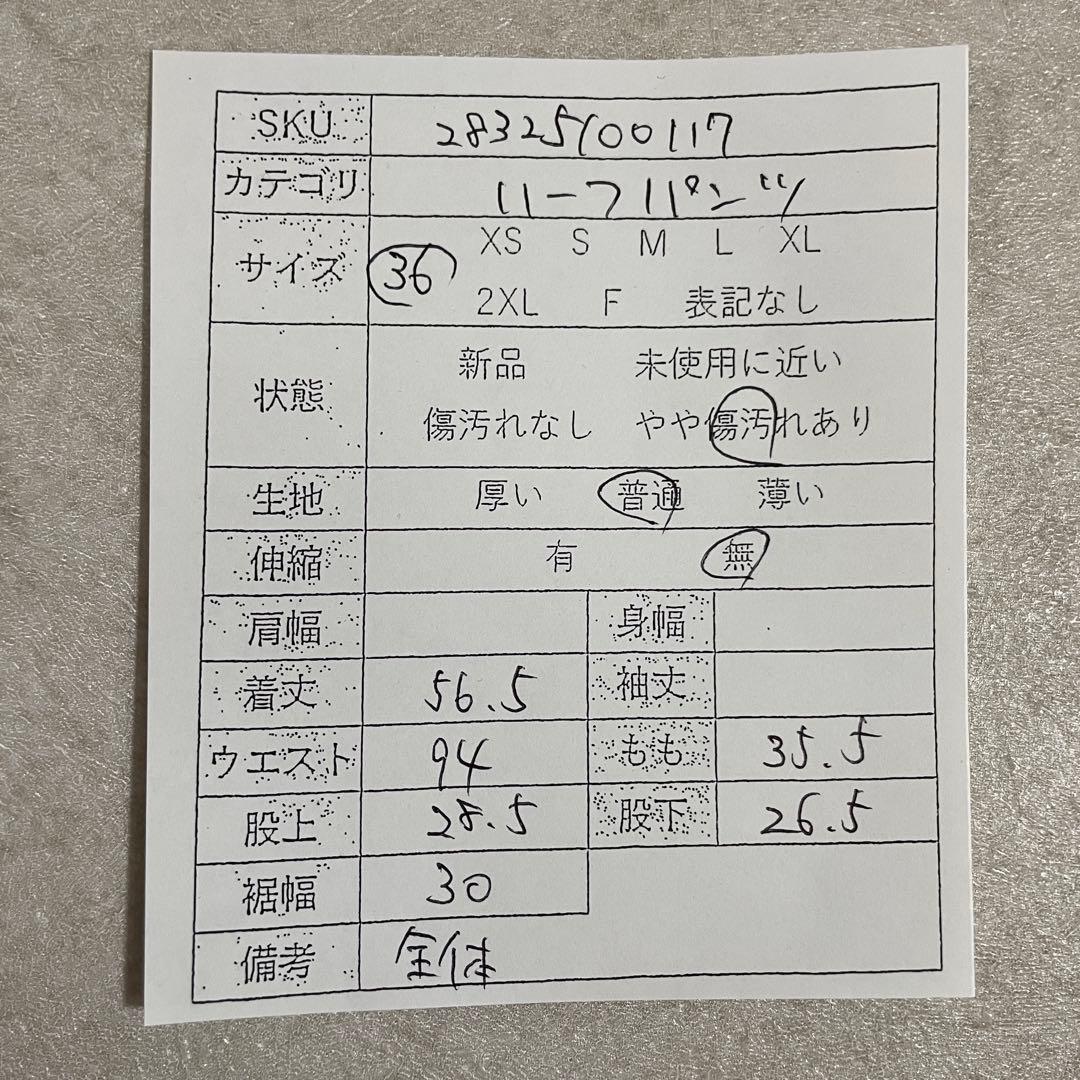 SKU 28325100117
カテゴリ ハーフパンツ
サイズ 36 XS S M L XL
2XL F 表記なし
状態 新品 未使用に近い
傷汚れなし やや傷汚れあり
生地 厚い 普通 薄い
伸縮 有 無
肩幅 身幅
着丈 56.5 袖丈
ウエスト 94 もも 35.5
股上 28.5 股下 26.5
裾幅 30
備考 全体